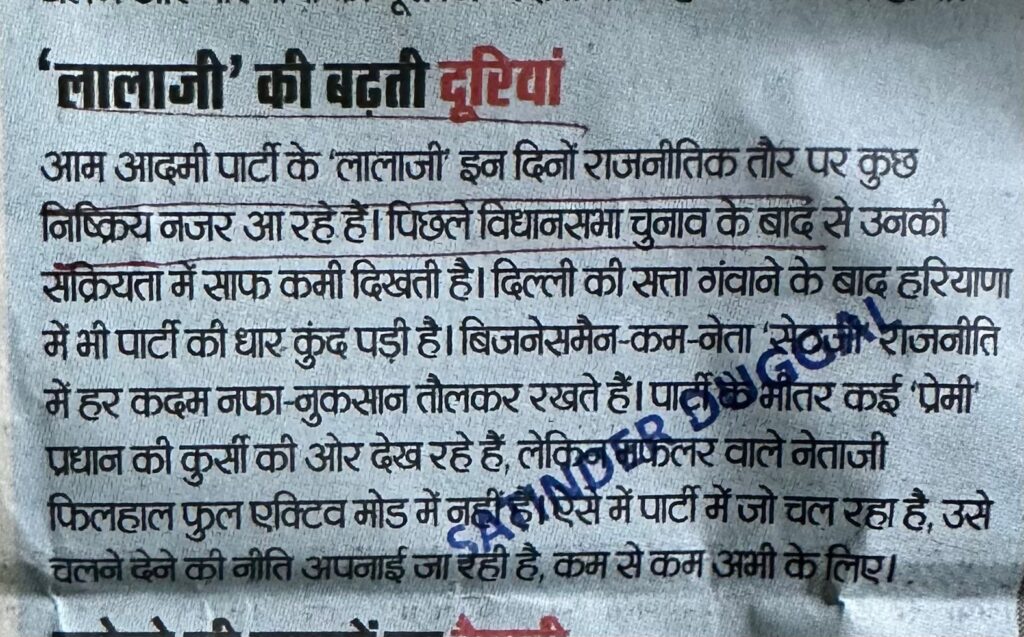 'लालाजी' की बढ़ती दूरियां
आम आदमी पार्टी के 'लालाजी' इन दिनों राजनीतिक तौर पर कुछ
निष्क्रिय नजर आ रहे हैं। पिछले विधानसभा चुनाव के बाद से उनकी
सक्रियता में साफ कमी दिखती है। दिल्ली की सत्ता गंवाने के बाद हरियाणा
में भी पार्टी की धार कुंद पड़ी है। बिजनेसमैन-कम-नेता 'सेठजी' राजनीति
में हर कदम नफा-नुकसान तौलकर रखते हैं। पार्टी के भीतर कई 'प्रेमी'
प्रधान की कुर्सी की ओर देख रहे हैं, लेकिन मफलर वाले नेताजी
फिलहाल फुल एक्टिव मोड में नहीं हैं। ऐसे में पार्टी में जो चल रहा है, उसे
चलने देने की नीति अपनाई जा रही है, कम से कम अभी के लिए।
SATINDER DUGGAL